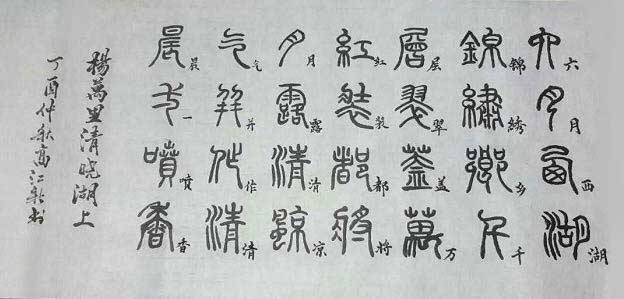 六月西湖
六月西湖
錦繡鄉千
锦绣乡千
層翠蓋萬
层翠盖万
紅裝都將
红装都将
月露清涼
月露清凉
气并作清
气并作清
晨一噴香
晨一喷香
楊萬里清曉湖上
丁酉仲秋高江书